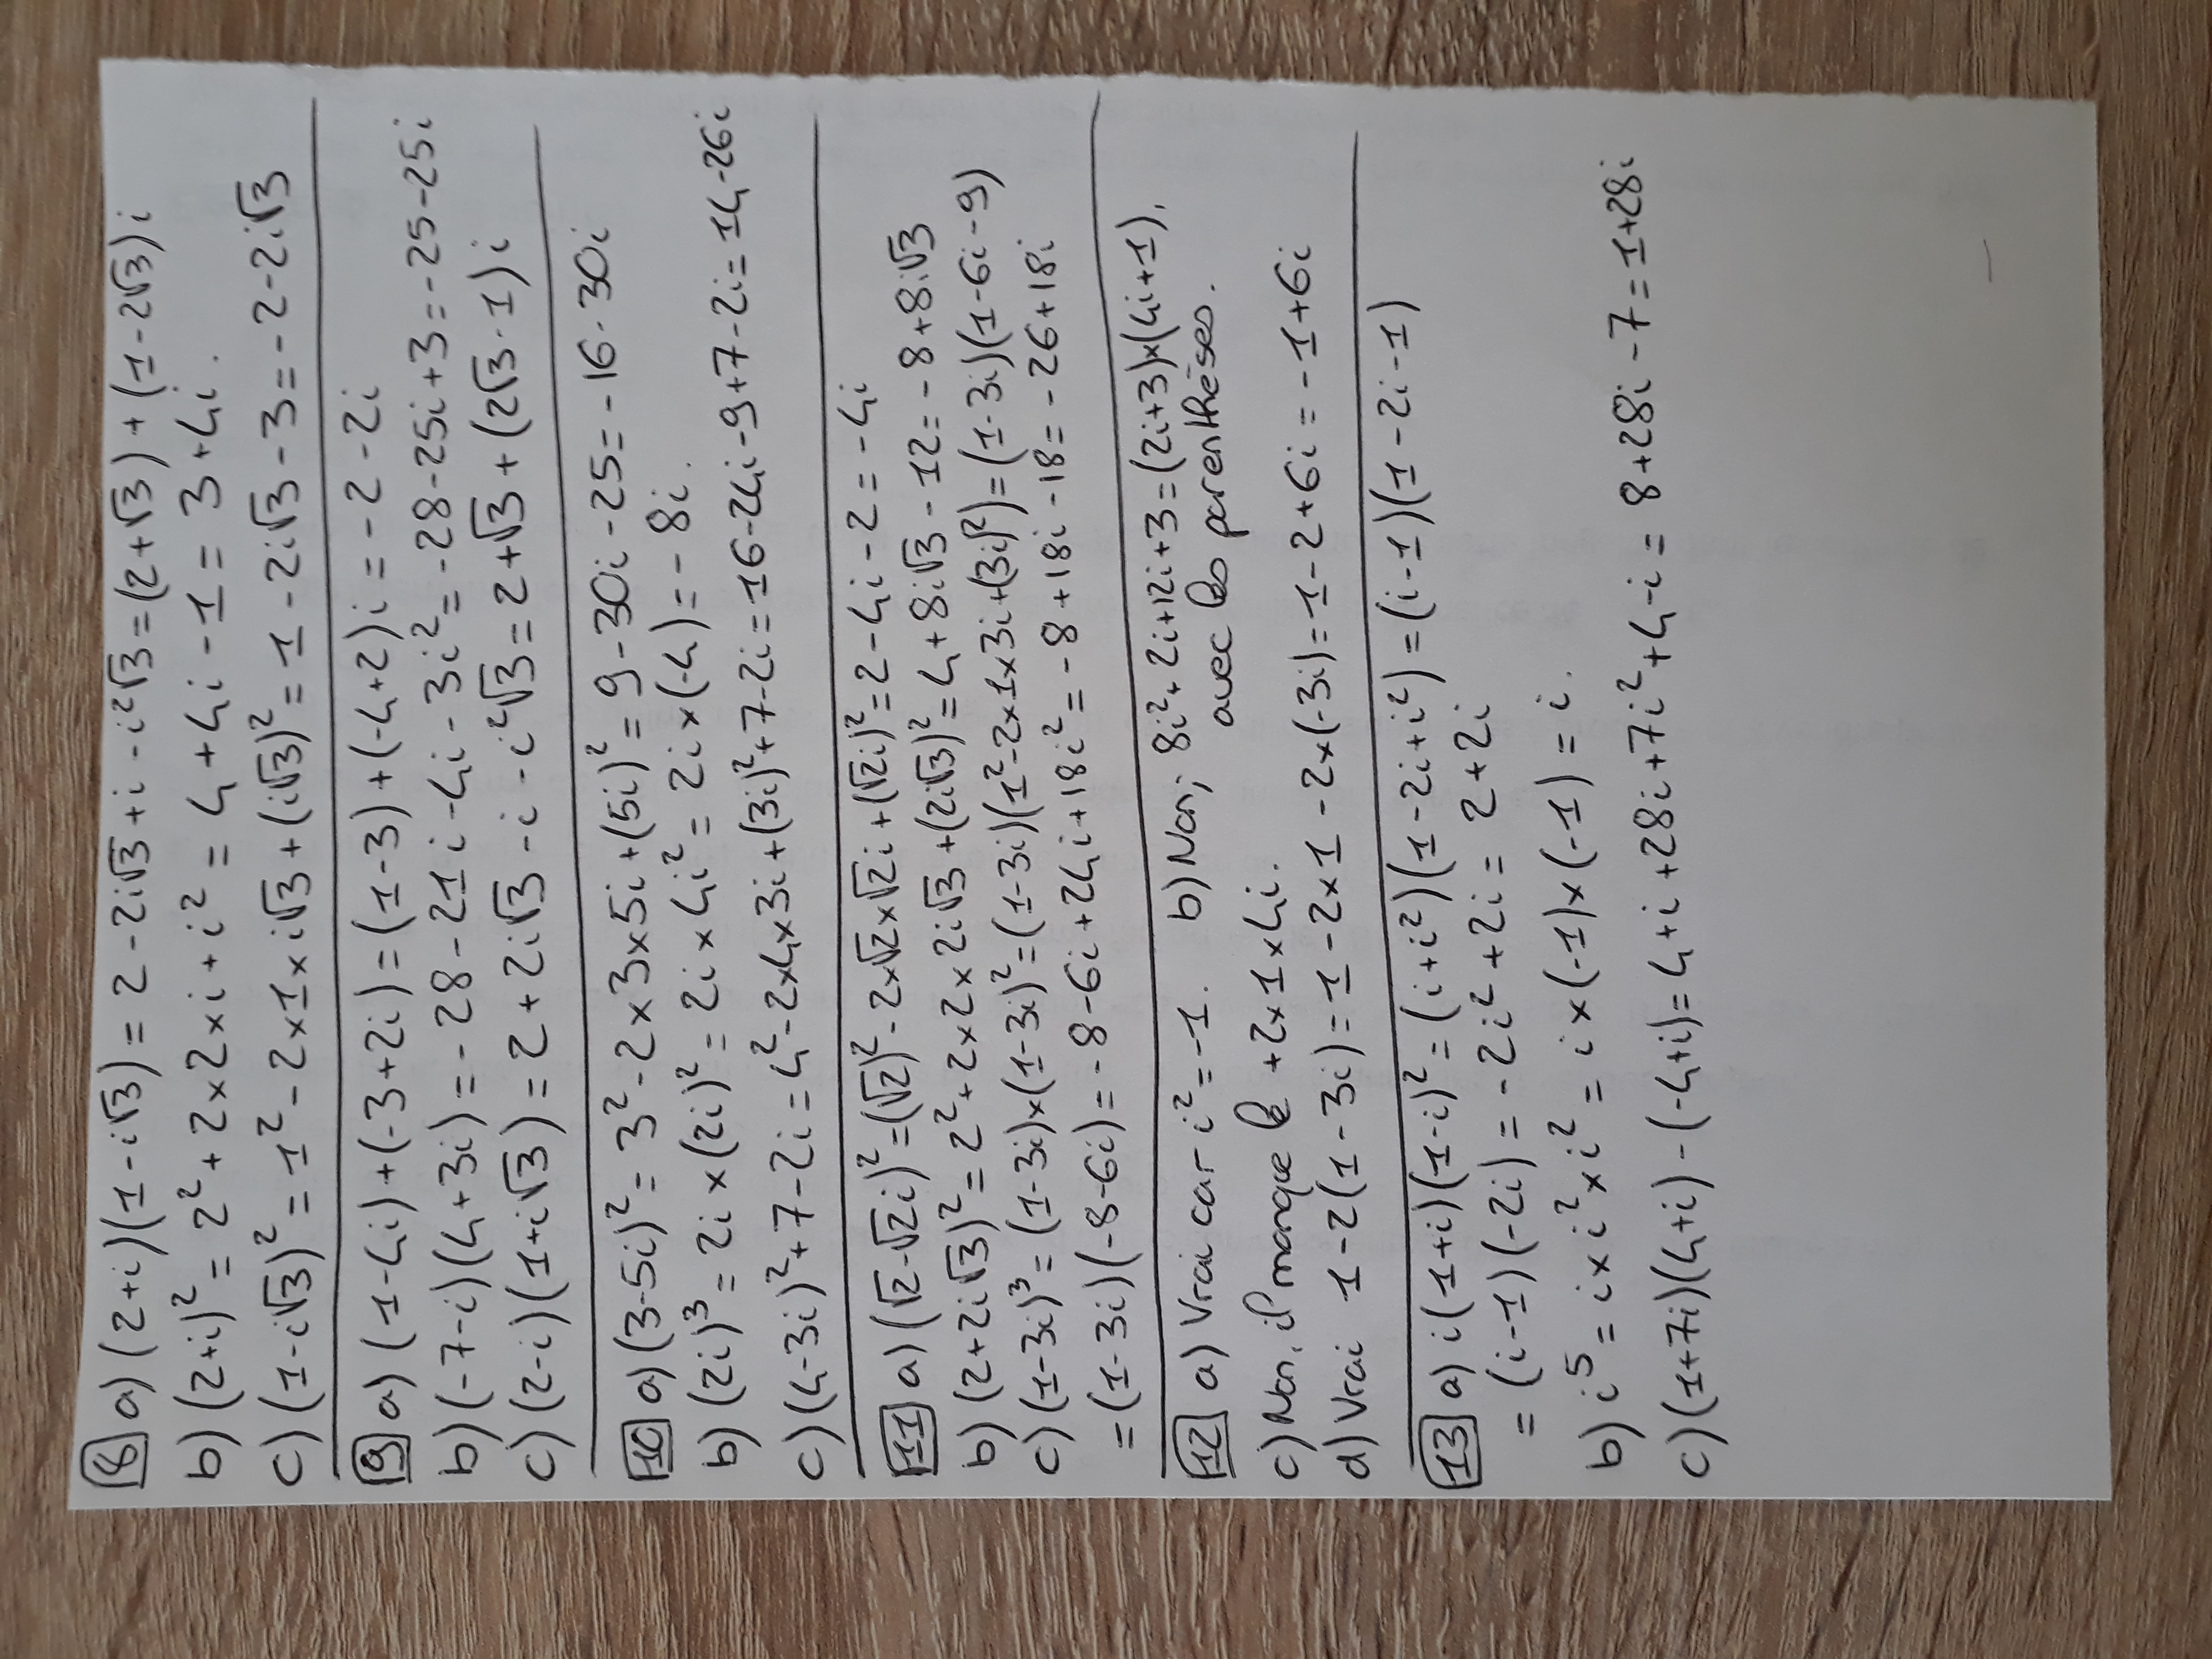 8 a) (2+i)(1-i√3) = 2-2i√3+i-i²√3=(2+√3)+(1-2√3)i
b) (2+i)² = 2²+2×2×i+i² = 4+4i-1 = 3+4i.
c) (1-i√3)² = 1²-2×1×i√3+(i√3)² = 1-2i√3-3=-2-2i√3
9 a) (1-4i)+(-3+2i)=(1-3)+(-4+2)i = -2-2i
b) (-7-i)(4+3i)=-28-21i-4i-3i²=-28-25i+3=-25-25i
c) (2-i)(1+i√3)=2+2i√3-i-i²√3=2+√3+(2√3-1)i
10 a) (3-5i)²=3²-2×3×5i+(5i)²=9-30i-25=-16-30i
b) (2i)³=2i×(2i)²=2i×4i²=2i×(-4)=-8i.
c) (4-3i)²+7-2i=4²-2×4×3i+(3i)²+7-2i=16-24i-9+7-2i=14-26i
11 a) (√2-√2i)²=(√2)²-2×√2×√2i+(√2i)²=2-4i-2=-4i
b) (2+2i√3)²=2²+2×2×2i√3+(2i√3)²=4+8i√3-12=-8+8i√3
c) (1-3i)³=(1-3i)×(1-3i)²=(1-3i)(1²-2×1×3i+(3i)²)=(1-3i)(1-6i-9)
=(1-3i)(-8-6i)=-8-6i+24i+18i²=-8+18i-18=-26+18i
12 a) Vrai car i²=-1. b) Non; 8i²+2i+12i+3=(2i+3)×(4i+1),
avec les parenthèses.
c) Non, il manque le +2×1×4i.
d) Vrai 1-2(1-3i)=1-2×1-2×(-3i)=1-2+6i=-1+6i
13 a) i(1+i)(1-i)²=(i+i²)(1-2i+i²)=(i-1)(1-2i-1)
=(i-1)(-2i)=-2i²+2i=2+2i
b) i⁵=i×i²×i²=i×(-1)×(-1)=i.
c) (1+7i)(4+i)-(-4+i)=4+i+28i+7i²+4-i=8+28i-7=1+28i